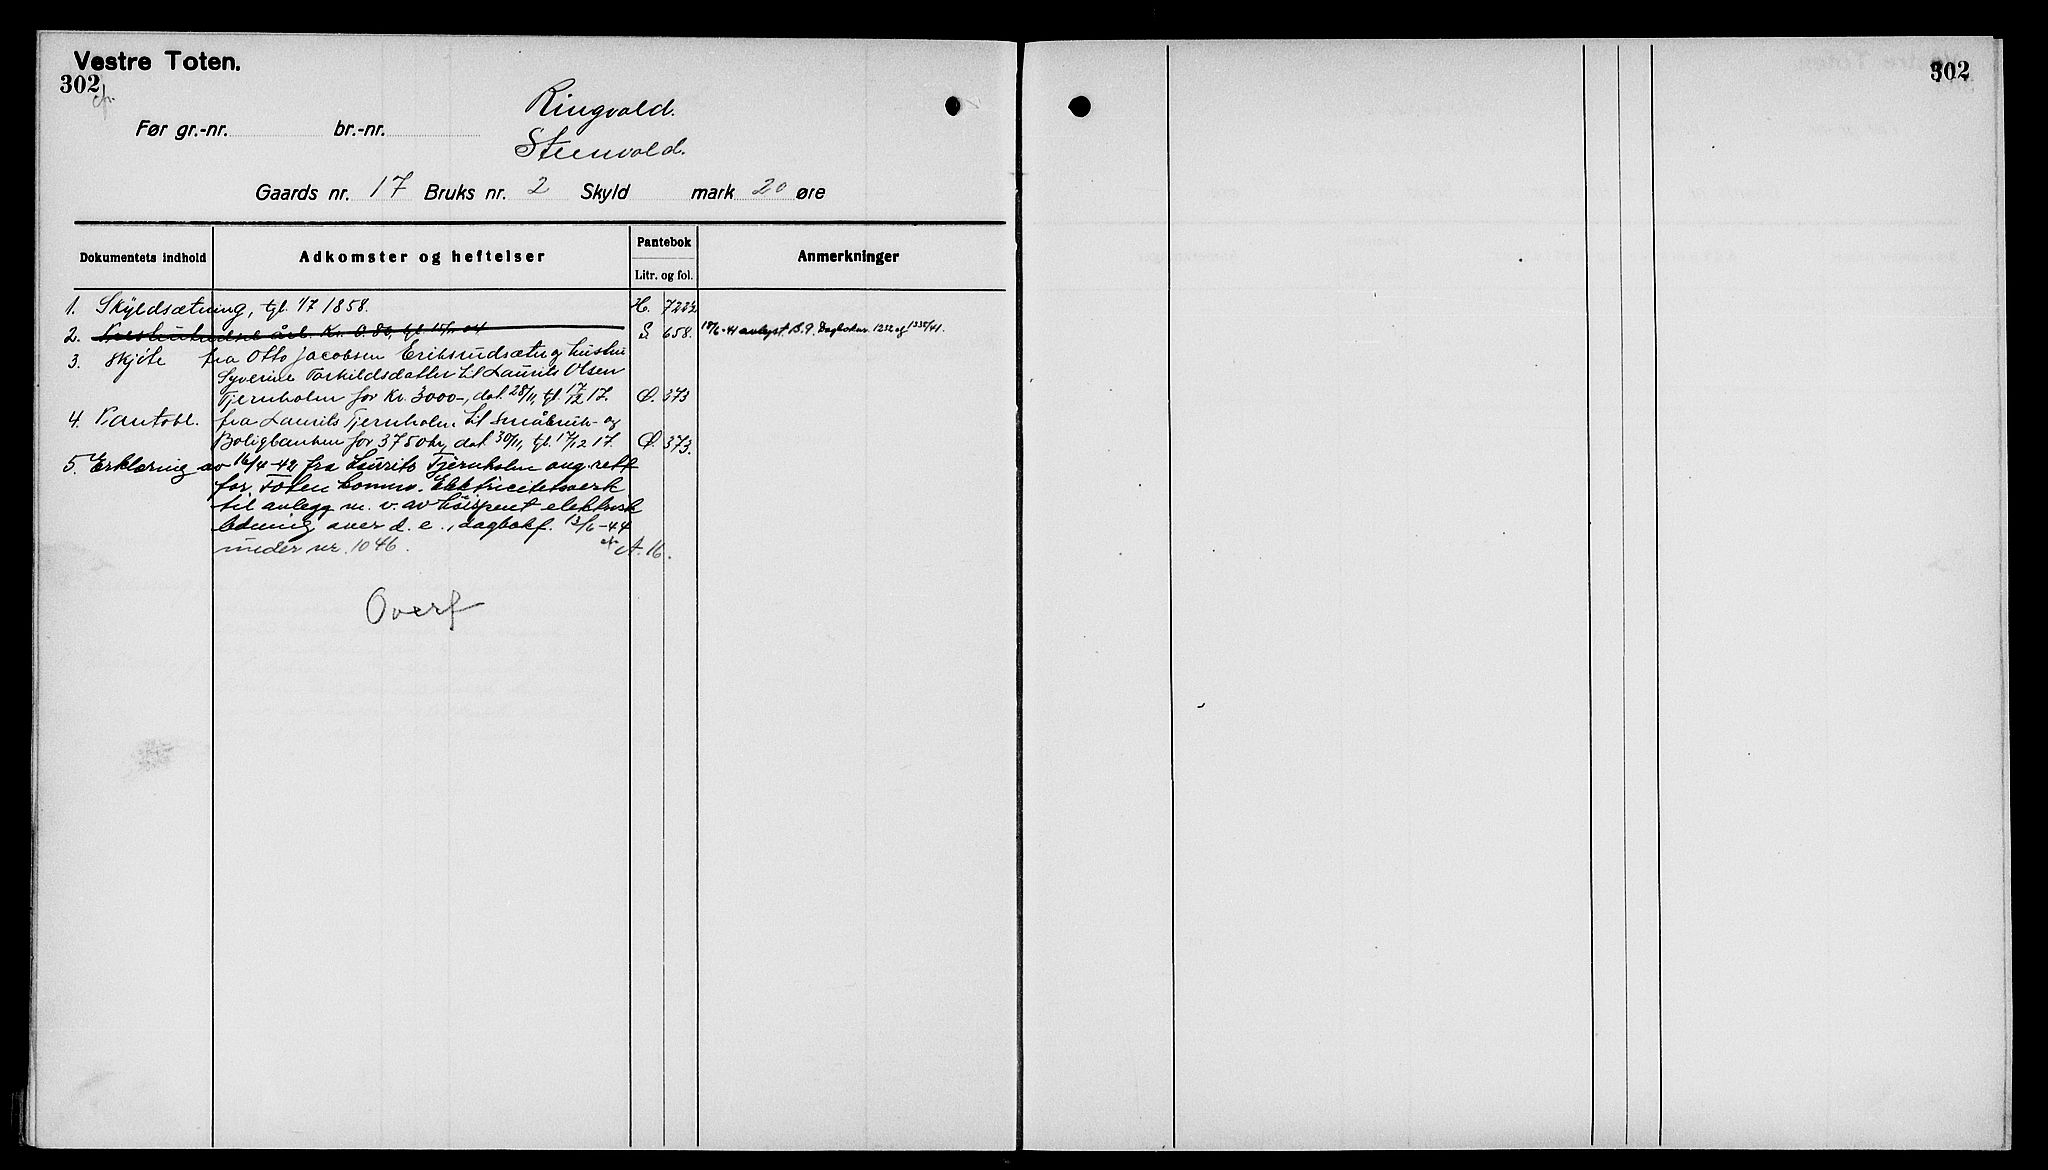 Vestre Toten.
302
cfr.
Ringvold.
Før gr.-nr. br.-nr.
Steenvold.
Gaards nr. 17 Bruks nr. 2 Skyld mark 20 øre
Dokumentets indhold Adkomster og heftelser Pantebok Litr. og fol. Anmerkninger
1. Skyldsætning, tgl. 1/7 1858. H. 722½
2. årl. Kr. 0.80, tgl. 15/11 04 S. 658. avlyst B. 9. Dagboknr. 1232 og
3. Skjøte fra Otto Jacobsen Eriksrudsæter og hustru
Syverine Torkildsdatter til Laurits Olsen
Tjernholm for Kr. 3000-, dat. 28/11, tgl. 17/12 17. O. 373
4. Pantobl. fra Laurits Tjernholm til Småbruk- og
Boligbanken for 3750 kr, dat. 30/11, tgl. 17/12 17. O. 373.
5. Erklæring av 16/4-42 fra Laurits Tjernholm ang. rett
for Toten komm. Elektricitetsverk
til anlegg m. v. av høispent elektrisk
ledning over d. e., dagbokf. 13/6-44
under nr. 1046. cfr A. 16.
Overf
302